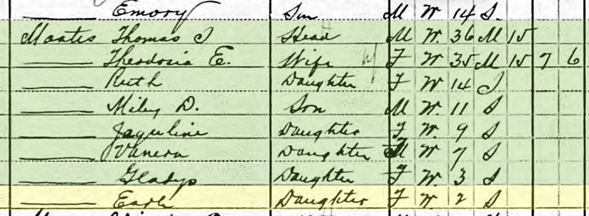 Emory Son M W. 14 S.
Moates Thomas J Head M W. 36 M 15
Theodosia E. Wife F W. 35 M 15 7 6
Ruth Daughter F W. 14 S
Miley D. Son M W. 11 S
Jaquline Daughter F W. 9 S
Vanera Daughter W 7 S
Gladys Daughter F W. 3 S
Earle Daughter F W. 2 S